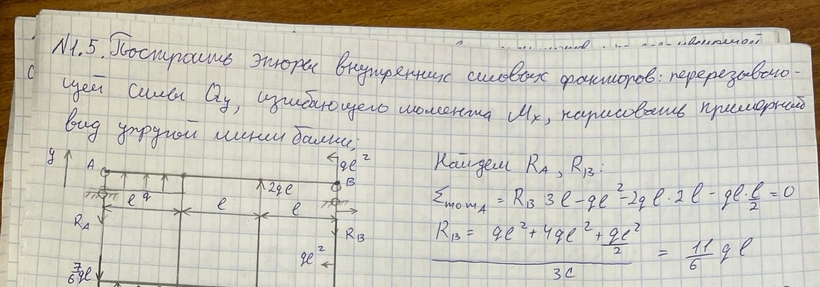 N1.5. Построить эпюры внутренних силовых факторов: перерезываю-
щей силы Qy, изгибающего момента Mx, нарисовать примерный
вид упругой линии балки;
y A ql²
2ql B
l q l l
RA RB
ql²
7/6 ql
Найдем RA, RB:
Σmom A = RB 3l - ql² - 2ql · 2l - ql · l/2 = 0
RB = (ql² + 4ql² + ql²/2) / 3l = 11/6 ql